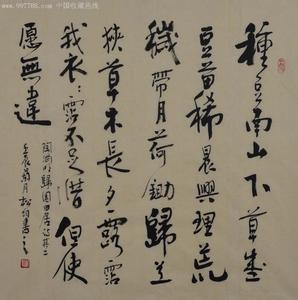 www.997788.com 中国收藏热线
種豆南山下草盛
豆苗稀晨興理荒
穢帶月荷鋤歸道
狹草木長夕露霑
我衣〻霑不足惜但使
愿無違
陶渊明歸園田居詩其二
壬辰菊月松書